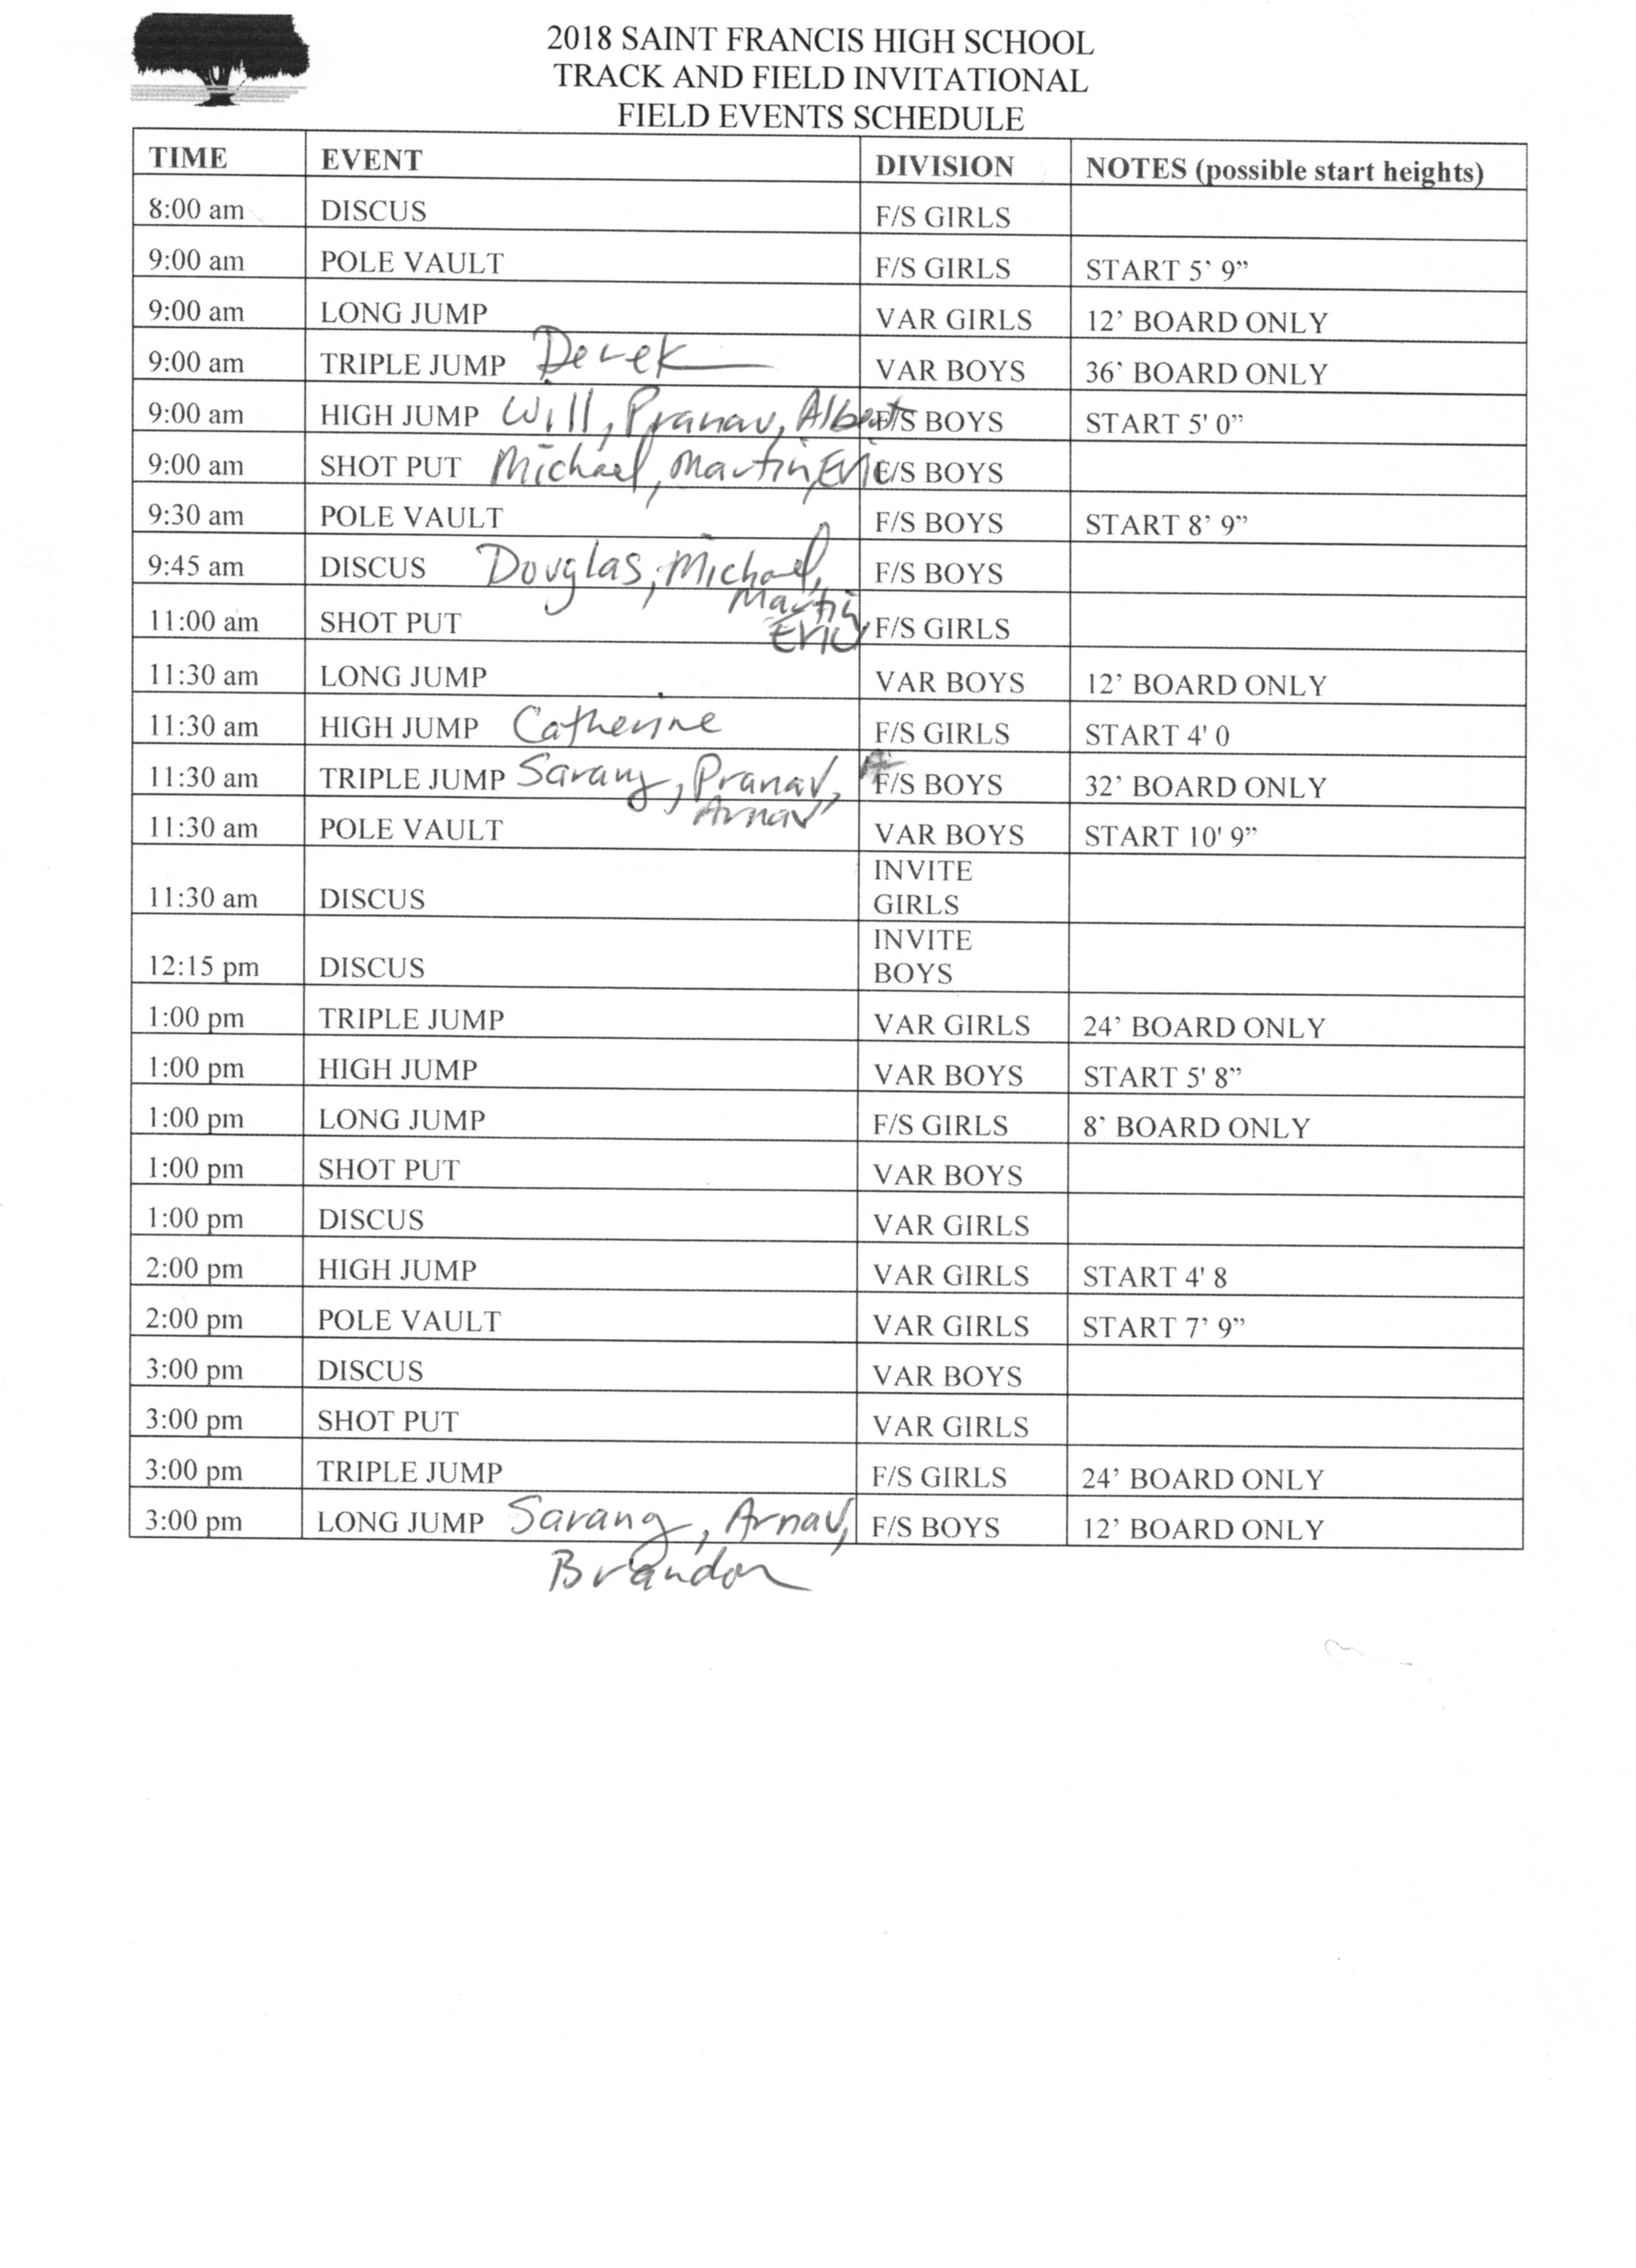 2018 SAINT FRANCIS HIGH SCHOOL
TRACK AND FIELD INVITATIONAL
FIELD EVENTS SCHEDULE
TIME EVENT DIVISION NOTES (possible start heights)
8:00 am DISCUS F/S GIRLS
9:00 am POLE VAULT F/S GIRLS START 5’ 9”
9:00 am LONG JUMP VAR GIRLS 12’ BOARD ONLY
9:00 am TRIPLE JUMP Derek VAR BOYS 36’ BOARD ONLY
9:00 am HIGH JUMP Will, Pranav, Albert F/S BOYS START 5' 0”
9:00 am SHOT PUT Michael, Martin, Eric F/S BOYS
9:30 am POLE VAULT F/S BOYS START 8’ 9”
9:45 am DISCUS Douglas, Michael, F/S BOYS
Martin
11:00 am SHOT PUT Eric F/S GIRLS
11:30 am LONG JUMP VAR BOYS 12’ BOARD ONLY
11:30 am HIGH JUMP Catherine F/S GIRLS START 4' 0
11:30 am TRIPLE JUMP Sarang, Pranav, F/S BOYS 32’ BOARD ONLY
Arnav
11:30 am POLE VAULT VAR BOYS START 10' 9”
11:30 am DISCUS INVITE
GIRLS
12:15 pm DISCUS INVITE
BOYS
1:00 pm TRIPLE JUMP VAR GIRLS 24’ BOARD ONLY
1:00 pm HIGH JUMP VAR BOYS START 5' 8”
1:00 pm LONG JUMP F/S GIRLS 8’ BOARD ONLY
1:00 pm SHOT PUT VAR BOYS
1:00 pm DISCUS VAR GIRLS
2:00 pm HIGH JUMP VAR GIRLS START 4' 8
2:00 pm POLE VAULT VAR GIRLS START 7’ 9”
3:00 pm DISCUS VAR BOYS
3:00 pm SHOT PUT VAR GIRLS
3:00 pm TRIPLE JUMP F/S GIRLS 24’ BOARD ONLY
3:00 pm LONG JUMP Sarang, Arnav, F/S BOYS 12’ BOARD ONLY
Brandon